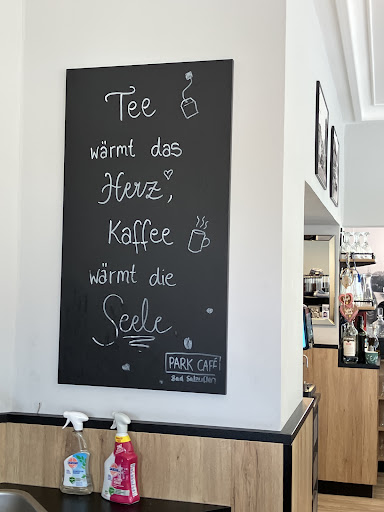 Tee
wärmt das
Herz,
Kaffee
wärmt die
Seele
PARK CAFÉ
Bad Salzuflen